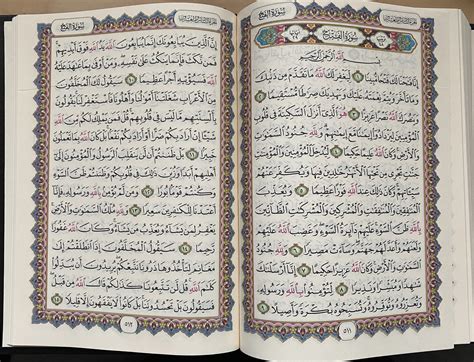 سُورَةُ الفَتْحِ
سُورَةُ الفَتْحِ
بِسْمِ اللَّهِ الرَّحْمَٰنِ الرَّحِيمِ
إِنَّا فَتَحْنَا لَكَ فَتْحًا مُّبِينًا ١ لِّيَغْفِرَ لَكَ اللَّهُ مَا تَقَدَّمَ مِن ذَنبِكَ
وَمَا تَأَخَّرَ وَيُتِمَّ نِعْمَتَهُ عَلَيْكَ وَيَهْدِيَكَ صِرَاطًا مُّسْتَقِيمًا ٢
وَيَنصُرَكَ اللَّهُ نَصْرًا عَزِيزًا ٣ هُوَ الَّذِي أَنزَلَ السَّكِينَةَ فِي قُلُوبِ
الْمُؤْمِنِينَ لِيَزْدَادُوا إِيمَٰنًا مَّعَ إِيمَٰنِهِمْ وَلِلَّهِ جُنُودُ السَّمَٰوَٰتِ
وَالْأَرْضِ وَكَانَ اللَّهُ عَلِيمًا حَكِيمًا ٤ لِّيُدْخِلَ الْمُؤْمِنِينَ وَالْمُؤْمِنَٰتِ
جَنَّٰتٍ تَجْرِي مِن تَحْتِهَا الْأَنْهَٰرُ خَٰلِدِينَ فِيهَا وَيُكَفِّرَ عَنْهُمْ
سَيِّـَٔاتِهِمْ وَكَانَ ذَٰلِكَ عِندَ اللَّهِ فَوْزًا عَظِيمًا ٥ وَيُعَذِّبَ
الْمُنَٰفِقِينَ وَالْمُنَٰفِقَٰتِ وَالْمُشْرِكِينَ وَالْمُشْرِكَٰتِ الظَّانِّينَ
بِاللَّهِ ظَنَّ السَّوْءِ عَلَيْهِمْ دَائِرَةُ السَّوْءِ وَغَضِبَ اللَّهُ عَلَيْهِمْ
وَلَعَنَهُمْ وَأَعَدَّ لَهُمْ جَهَنَّمَ وَسَاءَتْ مَصِيرًا ٦ وَلِلَّهِ جُنُودُ السَّمَٰوَٰتِ
وَالْأَرْضِ وَكَانَ اللَّهُ عَزِيزًا حَكِيمًا ٧ إِنَّا أَرْسَلْنَٰكَ
شَٰهِدًا وَمُبَشِّرًا وَنَذِيرًا ٨ لِّتُؤْمِنُوا بِاللَّهِ وَرَسُولِهِ
وَتُعَزِّرُوهُ وَتُوَقِّرُوهُ وَتُسَبِّحُوهُ بُكْرَةً وَأَصِيلًا ٩
٥١١
سُورَةُ الفَتْحِ
إِنَّ الَّذِينَ يُبَايِعُونَكَ إِنَّمَا يُبَايِعُونَ اللَّهَ يَدُ اللَّهِ فَوْقَ أَيْدِيهِمْ
فَمَن نَّكَثَ فَإِنَّمَا يَنكُثُ عَلَىٰ نَفْسِهِ وَمَنْ أَوْفَىٰ بِمَا عَٰهَدَ عَلَيْهُ
اللَّهَ فَسَيُؤْتِيهِ أَجْرًا عَظِيمًا ١٠ سَيَقُولُ لَكَ الْمُخَلَّفُونَ
مِنَ الْأَعْرَابِ شَغَلَتْنَا أَمْوَٰلُنَا وَأَهْلُونَا فَاسْتَغْفِرْ لَنَا يَقُولُونَ
بِأَلْسِنَتِهِم مَّا لَيْسَ فِي قُلُوبِهِمْ قُلْ فَمَن يَمْلِكُ لَكُم مِّنَ اللَّهِ
شَيْـًٔا إِنْ أَرَادَ بِكُمْ ضَرًّا أَوْ أَرَادَ بِكُمْ نَفْعًا بَلْ كَانَ اللَّهُ بِمَا تَعْمَلُونَ
خَبِيرًا ١١ بَلْ ظَنَنتُمْ أَن لَّن يَنقَلِبَ الرَّسُولُ وَالْمُؤْمِنُونَ إِلَىٰ
أَهْلِيهِمْ أَبَدًا وَزُيِّنَ ذَٰلِكَ فِي قُلُوبِكُمْ وَظَنَنتُمْ ظَنَّ السَّوْءِ
وَكُنتُمْ قَوْمًا بُورًا ١٢ وَمَن لَّمْ يُؤْمِن بِاللَّهِ وَرَسُولِهِ فَإِنَّا
أَعْتَدْنَا لِلْكَٰفِرِينَ سَعِيرًا ١٣ وَلِلَّهِ مُلْكُ السَّمَٰوَٰتِ وَالْأَرْضِ
يَغْفِرُ لِمَن يَشَاءُ وَيُعَذِّبُ مَن يَشَاءُ وَكَانَ اللَّهُ غَفُورًا
رَّحِيمًا ١٤ سَيَقُولُ الْمُخَلَّفُونَ إِذَا انطَلَقْتُمْ إِلَىٰ
مَغَانِمَ لِتَأْخُذُوهَا ذَرُونَا نَتَّبِعْكُمْ يُرِيدُونَ أَن يُبَدِّلُوا
كَلَٰمَ اللَّهِ قُل لَّن تَتَّبِعُونَا كَذَٰلِكُمْ قَالَ اللَّهُ مِن قَبْلُ
فَسَيَقُولُونَ بَلْ تَحْسُدُونَنَا بَلْ كَانُوا لَا يَفْقَهُونَ إِلَّا قَلِيلًا ١٥
٥١٢